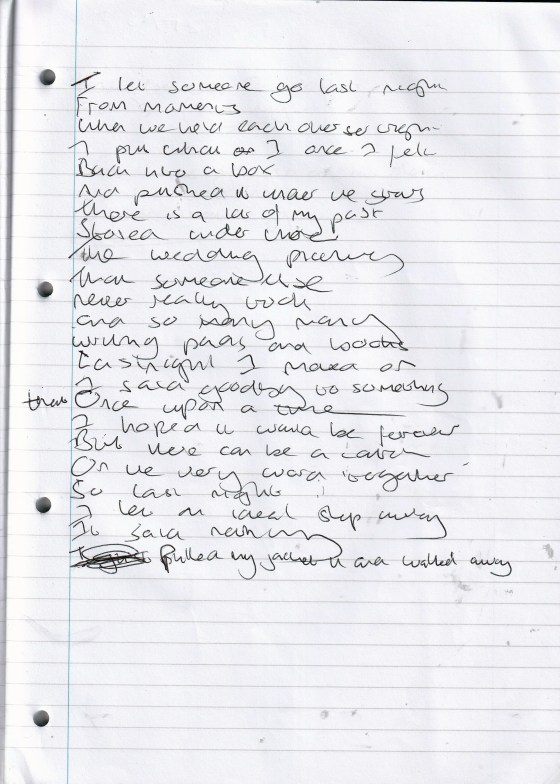 I let someone go last night
From moments
When we held each other so tight
I put what I once I felt
Back into a box
And pushed it under the stairs
There is a lot of my past
Stored under there
The wedding pictures
That someone else
never really took
and so many many
writing pads and books
Last night I moved on
I said goodbye to something
that Once upon a time
I hoped it would be forever
But there can be a catch
On the very word together
So last night
I let an ideal slip away
It said nothing
Pulled my jacket and walked away